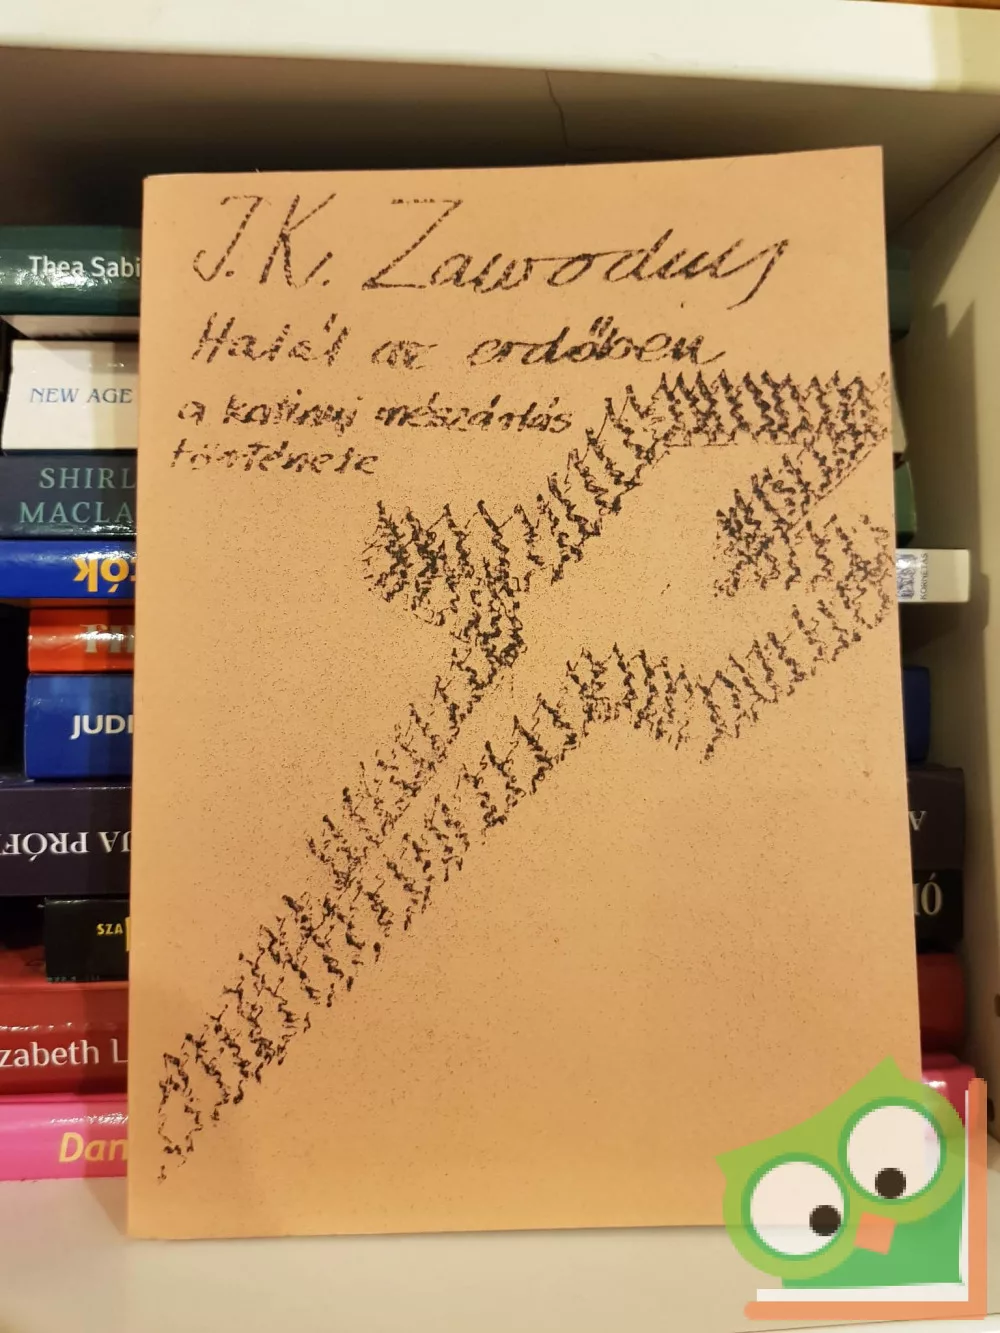 J.K. Zawodny
Halál az erdőben
a katinyi mészárlás
története
Thea Sabi
NEW AGE
SHIRL
MACLA
ók
JUDI
JA PRÓF
A
SZA
zabeth L
Dan